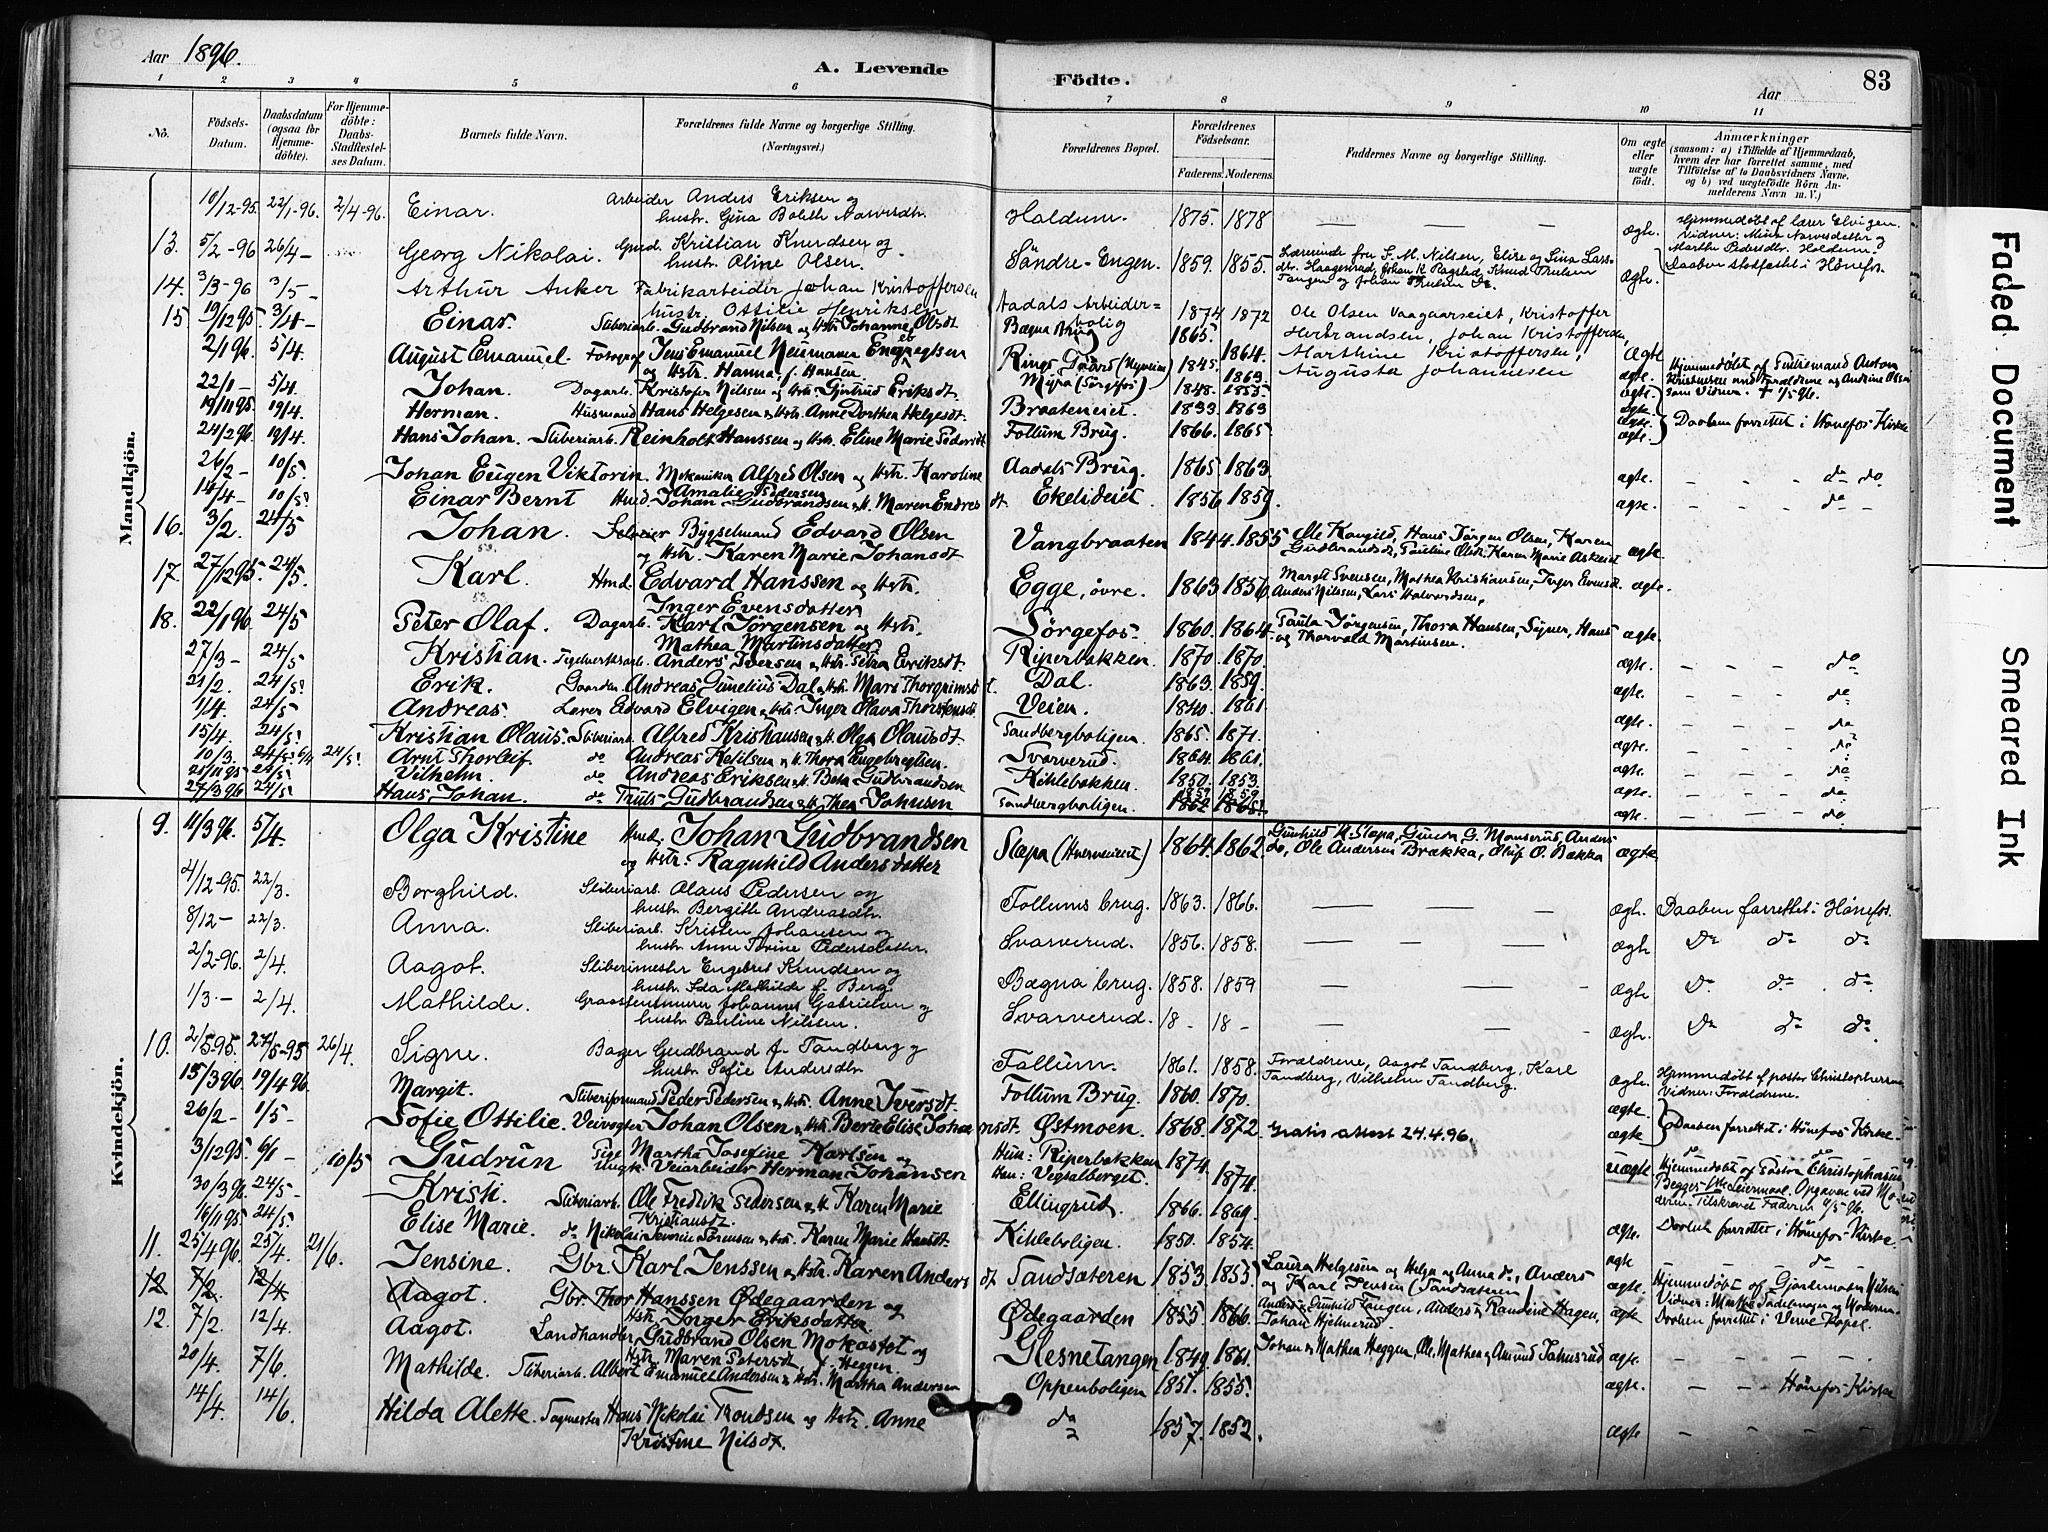 Aar 1896.
A. Levende
Födte.
83
Aar
1 2 3 4 5 6 7 8 9 10 11
No.
Födsels-Datum.
Daabsdatum (ogsaa for Hjemmedöbte).
For Hjemmedöbte: Daabs-Stadfæstelses Datum.
Barnets fulde Navn.
Forældrenes fulde Navne og borgerlige Stilling. (Næringsvei.)
Forældrenes Bopæl.
Forældrenes Födselsaar.
Faderens. Moderens.
Faddernes Navne og borgerlige Stilling.
Om ægte eller uægte födt.
Anmærkninger
(saasom: a) i Tilfælde af Hjemmedaab, hvem der har forrettet samme, med Tilföielse af to Daabsvidners Navne, og b) ved uægtefödte Börn Anmelderens Navn m. V.)
Mandkjön.
10/12-95. 22/1-96. 2/4-96. Einar. Arbeider Anders Eriksen og
hustr. Gina Bolette Narvesdtr. Holdum. 1875. 1878 — — — ægte.
13. 5/2-96 26/4- Georg Nikolai. Gmd. Kristian Knudsen og
hustr. Oline Olsen. Söndre-Engen. 1859. 1855. ægte. Daaben stadfæstet i Hönefos.
14. 3/3-96 3/5- Arthur Anker Fabrikarbeider Johan Kristoffersen
hustr. Ottilie Henriksen Aadals Arbeiderbolig 1874 1872 Ole Olsen Vaagaarseiet, Kristoffer
Herbrandsen, Johan Kristoffersen,
Marthine Kristoffersen,
Augusta Johannesen Ægte
15 19/12 95. 3/4- Einar. Sliberiarb. Gudbrand Nilsen og Hstr. Johanne Olsdt. Bægna Brug 1865.
2/1 96. 5/4. August Emanuel. Fotograf Jens Emanuel Neumann Engebregtsen
og Hstr. Hanna f. Hansen. 1845. 1864. ægte.
22/1- 5/4. Johan. Dagarb. Kristofer Nilsen og Hstr. Gjertrud Eriksdt. Myra (Sørgefos) 1848. 1855.
19/11 95. 19/4. Herman. Husmand Hans Helgesen og Hstr. Anne Dorthea Helgesdt. Braateneiet. 1833. 1863 ægte.
24/2 96. 19/4. Hans Johan. Sliberiarb. Reinholt Hanssen og Hstr. Eline Marie Pedersdt. Follum Brug. 1866. 1865. ægte. Daaben forrettet i Hönefos Kirke
26/2- 10/5. Johan Eugen Viktorin. Mekaniker Alfred Olsen og Hstr. Karoline
Amalie Pedersen Aadals Brug. 1865 1863 ægte. - - - do do
14/4- 10/5. Einar Bernt Hmd. Johan Gudbrandsen og H. Maren Endresdt. Ekelideiet 1856 1859. ægte. - - - do -
16. 3/2. 24/5 Johan. Selveier Bygselmand Edvard Olsen
og Hstr. Karen Marie Johansdt Vangbraaten 1844. 1855 ægte.
17. 27/12 95. 24/5. Karl. Hmd. Edvard Hanssen og Hstr.
Inger Evensdatter Egge, övre. 1863 1856. Marget Svensen, Mathea Kristiansen, Inger Evensd.
Anders Nilssen, Lars Halvordsen, ægte.
18. 22/1 96. 24/5 Peter Olaf. Dagarb. Karl Jørgensen og Hstr.
Mathea Martinsdatter Sørgefos. 1860. 1864. Paula Jørgensen, Thora Hansen, Signe, Hans
og Thorvald Martinsen. ægte.
27/3- 24/5 Kristian. Teglverksarb. Anders Iversen og Hstr. Petra Eriksdt. Riperbakken. 1870. 1870. ægte. - - - do
21/2. 24/5. Erik. Gaardm. Andreas Gunelius Dal og Hstr. Mari Thorgrimsdt. Dal. 1863. 1859. ægte. - - - do
1/4. 24/5 Andreas. Lærer Edvard Elvigen og Hstr. Inger Olava Thorstensdt. Veien. 1840. 1861 ægte. - - - do
15/4. 24/5. Kristian Olaus. Sliberiarb. Alfred Kristiansen og H. Olga Olausdt. Sandbergboligen. 1865. 1871. ægte. - - - do
10/3. 24/5. 6/4 24/5. Arnt Thorleif. do Andreas Ketilsen og H. Thora Engebregtsen Svarverud. 1864. 1861. ægte. - - - do
21/11 95 24/5. Vilhelm. do Andreas Eriksen og H. Beta Gudbrandsen Kihlebakken. 1850. 1853. ægte. - - - do
27/3 96. 24/5. Hans Johan. do Truls Gudbrandsen og H. Thea Johnsen Sandbergboligen. 1859. 1859 ægte. - - - do
Kvindekjön.
9. 11/3 96. 5/4. Olga Kristine Hmd. Johan Gudbrandsen
og Hstr. Ragnhild Andersdatter Slæpa (Hverveneiet) 1864. 1862. ægte
4/12-95. 22/3. Borghild. Sliberiarb. Olaus Pedersen og
hustr. Bergitte Andreasdtr. Follums brug. 1863. 1866. — — - ægt. Daaben forrettet i Hönefos.
8/12- 22/3. Anna. Sliberiarb. Kristen Johansen og
hustr. Anne Torine Pedersdatter. Svarverud. 1856. 1858. — — - ægt. Do do do
2/2-96. 2/4. Aagot. Slibermester Engebret Knudsen og
hustr. Ida Mathilde f. Berg. Bægna brug. 1858. 1859 — — - ægt. Do do do
1/3.- 2/4. Mathilde. Graastensmurer Johannes Gabrielsen og
hustr. Pauline Nilssen. Svarverud. 18- 18- — — - ægt. Do do do
10. 2/5-95. 24/5-95 26/4. Signe. Bager Gudbrand J. Tandberg og
hustr. Sofie Andersdtr. Follum. 1861. 1858. Forældrene, Aagot Tandberg, Karl
Tandberg, Vilhelm Tandberg. ægt. Hjemmedöbt af pastor Christophersen
Vidner: Forældrene.
15/3 96. 19/4 96. Margit. Sliberiformand Peder Pedersen og Hstr. Anne Iversdt. Follum Brug. 1860. 1870. ægte
26/2- 1/5- Sofie Ottilie. Veivogter Johan Olsen og Hstr. Berte Elise Johannsdt. Østmoen. 1868. 1872. Gratis attest 24.4.96. ægte Daaben forrettet i Hönefos Kirke-
3/12 95. 6/1- 10/5 Gudrun Pige Martha Josefine Karlsen og
Ungk. Veiarbeider Herman Johansen Hun: Riperbakken
Han: Vegsalberget. 1874. 1874. uægte
30/3 96. 24/5- Kristi. Sliberiarb. Ole Fredrik Pedersen og H. Karen Marie
Kristiansdt. Ellingrud. 1866. 1869. ægte Daaben forrettet i Hönefos-Kirke.
19/11 95 24/5. Elise Marie. do Nikolai Severin Sörensen og Hstr. Karen Marie Hansdt. Kihleboligen. 1850. 1854. ægte - - do
11. 25/4 96. 25/4. 21/6. Jensine. Gbr. Karl Jenssen og Hstr. Karen Andersdt. Sandsæteren 1853 1855. Laura Helgesen og Helga og Anna do, Anders
og Karl Jensen (Sandsæteren ægte.
12 7/2. 12/4 Aagot. Gbr. Thor Hanssen Ødegaarden og
Hstr. Inger Eriksdatter Ødegaarden 1855. 1866. ægte Daaben forrettet i Veme Kapel.
12. 7/2. 12/4. Aagot. Landhandler Gudbrand Olsen Mokastet og
Hstr. Maren Petersdt. f. Heggen Glesnetangen 1849. 1861. ægte. - - - -
20/4. 7/6. Mathilde. Sliberiarb. Albert Emanuel Andersen og Hstr. Martha Andersen Oppenboligen 1851. 1855. ægte. - - Hönefos-Kirke
14/4. 14/6. Hilda Alette. Sagmester Hans Nikolai Trondsen og Hstr. Anne
Kristine Nilsdt. do 1857. 1852. ægte - - - -
Faded Document
Smeared Ink